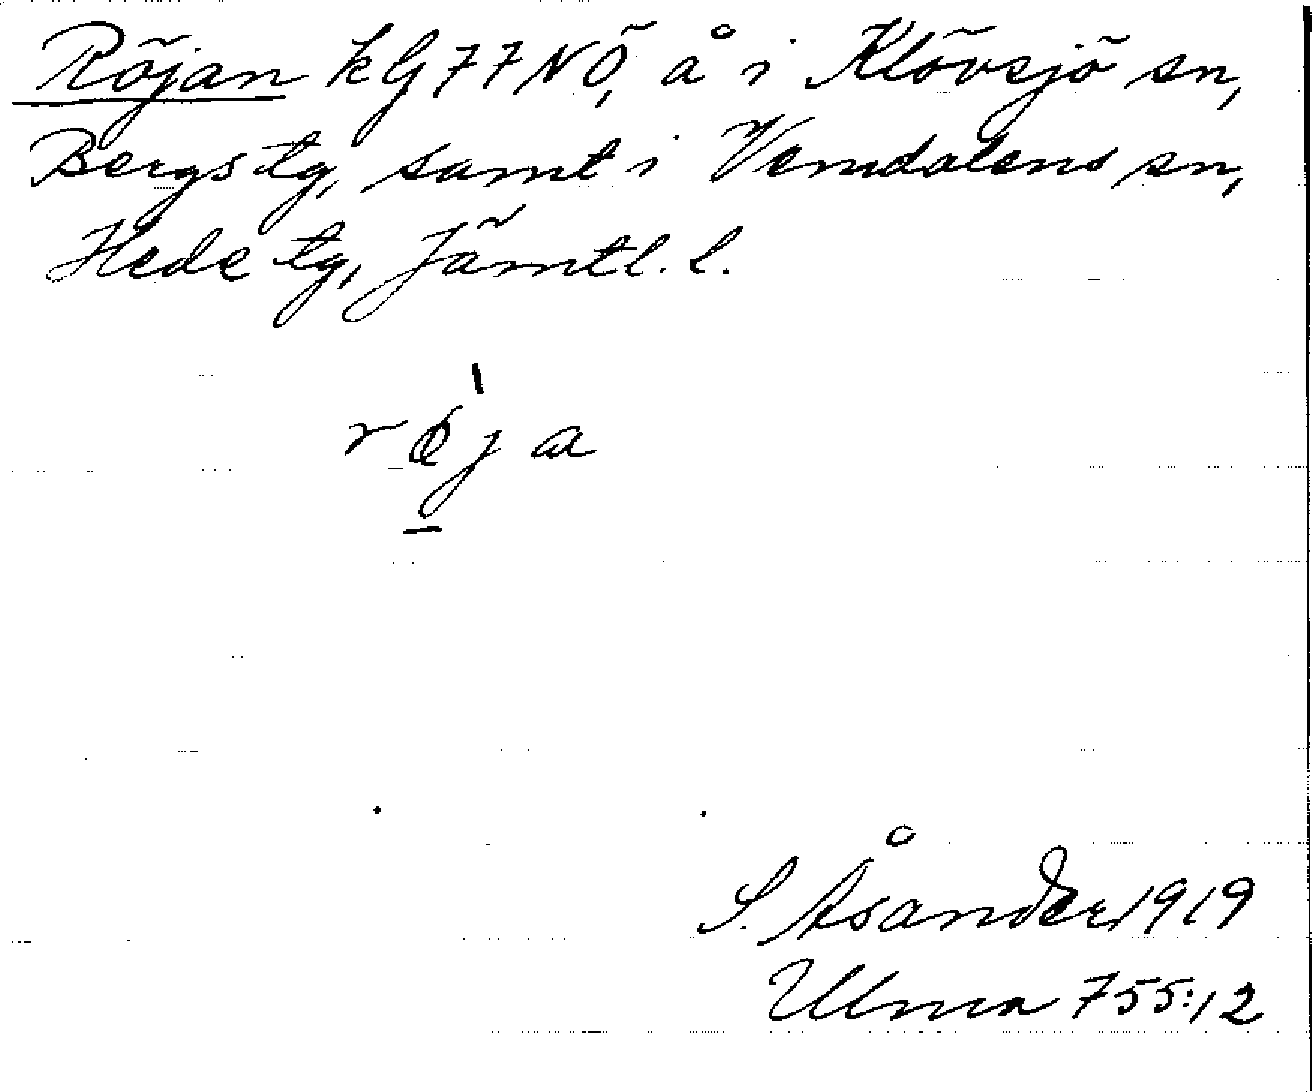 Röjan kG77NÖ, å i Klövsjö sn,
Bergs tg, samt i Vemdalens sn,
Hede tg, Jämtl. l.
røja
S. Åsander 1919
Ulma 755:12